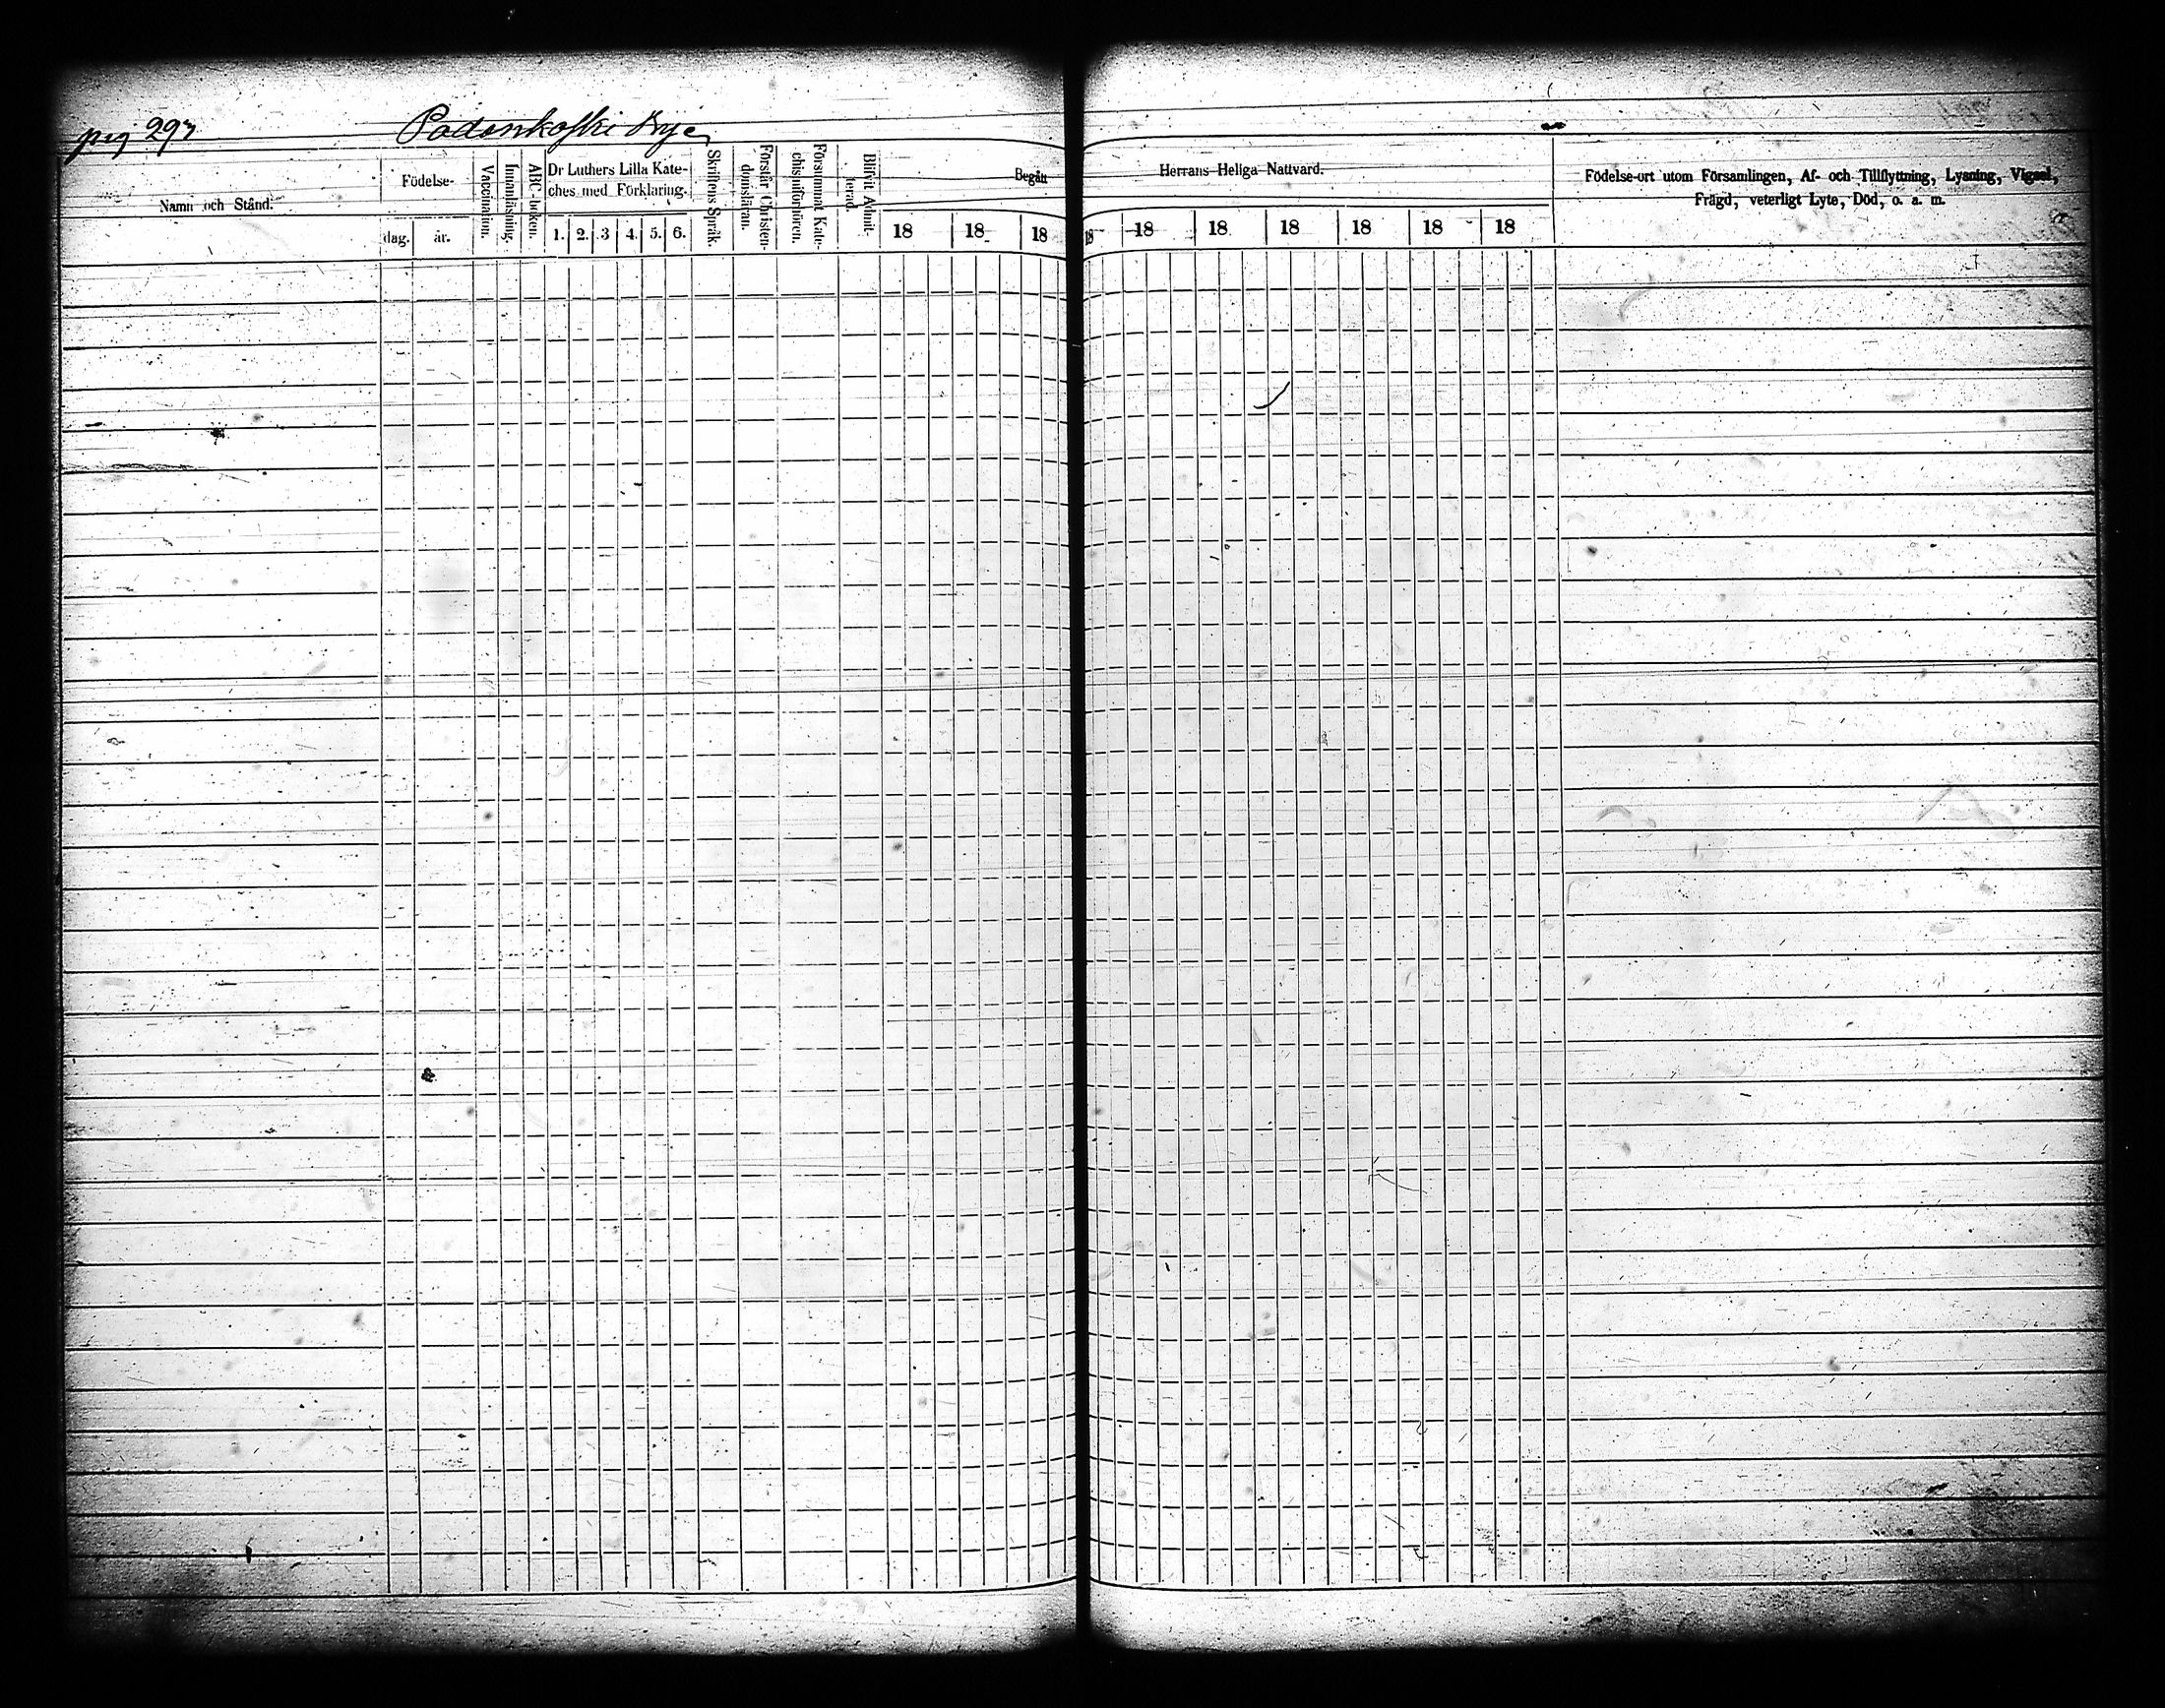 pag 293 Padankoski by
Namn och Stånd.
Födelse-
dag. år.
Vaccination.
Innanläsning.
ABC-boken.
Dr Luthers Lilla Kate-
ches med Förklaring.
1. 2. 3 4. 5. 6.
Skriftens Språk.
Förstår Christen-
domsläran.
Försummat Kate-
chismiförhören.
Blifvit Admit-
terad.
Begått Herrans Heliga Nattvard.
18 18 18 18 18 18 18 18 18 18
Födelse-ort utom Församlingen, Af- och Tillflyttning, Lysning, Vigsel,
Frägd, veterligt Lyte, Död, o. a. m.